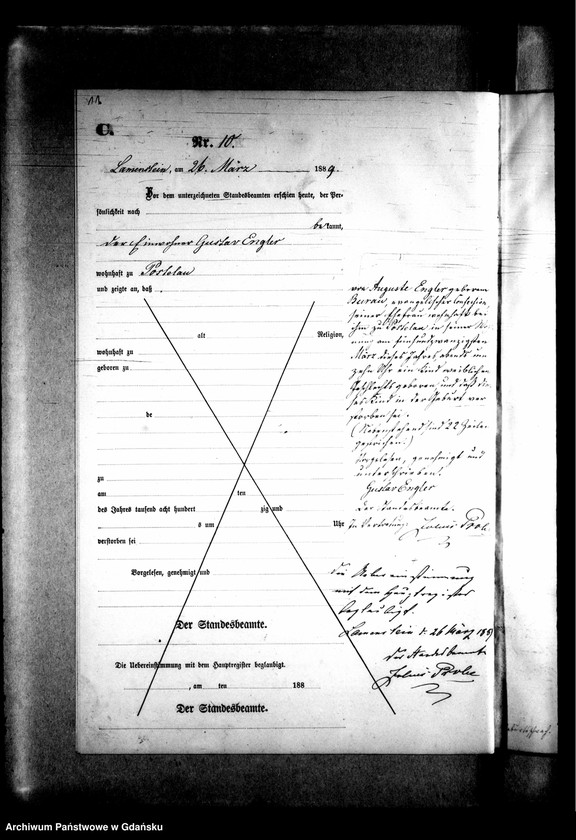 11
C.
Nr. 10.
Lamenstein, am 26. März 1889.
Vor dem unterzeichneten Standesbeamten erschien heute, der Per-
sönlichkeit nach
bekannt,
der Einwohner Gustav Engler
wohnhaft zu Postelau
und zeigte an, daß
alt Religion,
wohnhaft zu
geboren zu
de
zu
am ten
des Jahres tausend acht hundert zig und
um Uhr
verstorben sei
Vorgelesen, genehmigt und
Der Standesbeamte.
Die Uebereinstimmung mit dem Hauptregister beglaubigt.
, am ten 188
Der Standesbeamte.
von Auguste Engler geborenen
Burau, evangelischer Confession,
seiner Ehefrau wohnhaft bei
ihm zu Postelau in seiner Woh
nung am fünfundzwanzigsten
März dieses Jahres, abends um
zehn Uhr ein Kind weiblichen
Geschlechts geboren, und daß die
ses Kind in der Geburt ver
storben sei.
(Nebenstehend sind 22 Zeilen
gestrichen.)
Vorgelesen, genehmigt und
unterschrieben.
Gustav Engler
Der Standesbeamte.
In Vertretung: Julius
Die Uebereinstimmung
mit dem Hauptregister
beglaubigt.
Lamenstein d. 26 März 1889
Der Standesbeamte
Julius
Archiwum Państwowe w Gdańsku